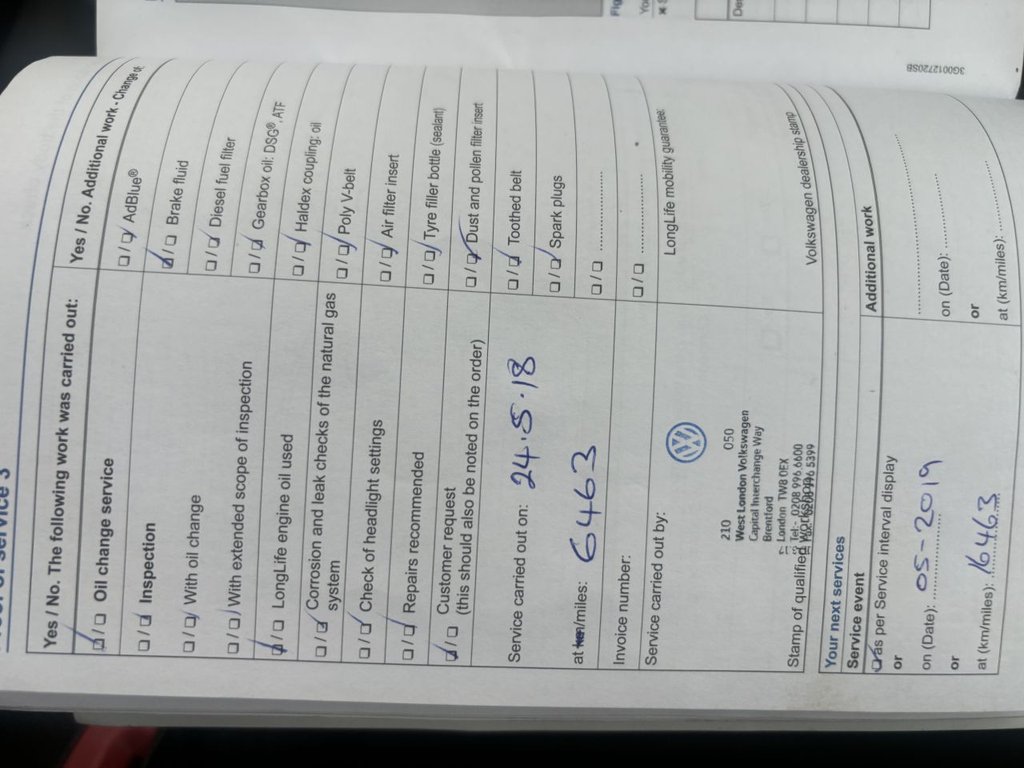 Yes / No. The following work was carried out:
☑ / ☐ Oil change service
☐ / ☑ Inspection
☐ / ☑ With oil change
☐ / ☑ With extended scope of inspection
☑ / ☐ LongLife engine oil used
☐ / ☑ Corrosion and leak checks of the natural gas
system
☐ / ☑ Check of headlight settings
☐ / ☑ Repairs recommended
☑ / ☐ Customer request
(this should also be noted on the order)
Yes / No. Additional work - Change of:
☐ / ☑ AdBlue®
☑ / ☐ Brake fluid
☐ / ☑ Diesel fuel filter
☐ / ☑ Gearbox oil: DSG®, ATF
☐ / ☑ Haldex coupling: oil
☐ / ☑ Poly V-belt
☐ / ☑ Air filter insert
☐ / ☑ Tyre filler bottle (sealant)
☐ / ☑ Dust and pollen filter insert
☐ / ☑ Toothed belt
☐ / ☑ Spark plugs
☐ / ☐ ....................
☐ / ☐ ....................
Service carried out on: 24.5.18
at km/miles: 6463
Invoice number:
Service carried out by:
210 050
West London Volkswagen
Capital Interchange Way
Brentford
London TW8 0EX
Tel:- 0208 996 6600
Fax:- 0208 996 5399
Stamp of qualified workshop
LongLife mobility guarantee:
Volkswagen dealership stamp
Your next services
Service event
☑ as per Service interval display
or
on (Date): 05-2019
or
at (km/miles): 16463
Additional work
....................
on (Date): ....................
or
at (km/miles): ....................
3G0012720SB